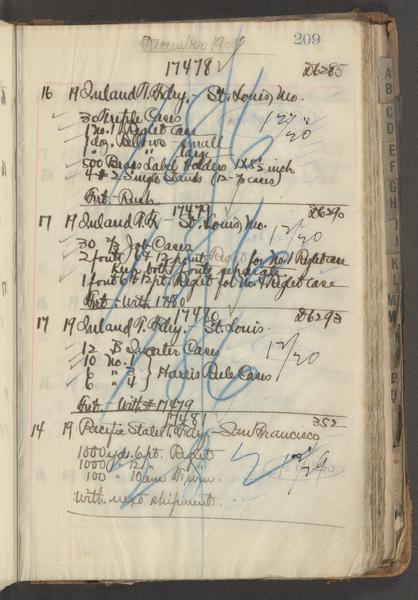 December 190
209
17478 ✓ D6285
16 19 Inland T. Fdry. - St. Louis, Mo.
30 Triple Cases
1 No. 1 Right Case 12/20
1 doz. Bellows small
1 " " large
500 Brass Label Holders 1 x 5½ inch
4 # 2 Single Stands (12-⅔ cases)
Frt - Rush
17479 ✓ D6290
17 19 Inland T. F. St. Louis, Mo.
30 ⅔ Job Cases 12/20
2 fonts 6 & 12 point Right for No. 1 Right case
Keep both fonts separate
1 font 6 & 12 pt. Right for No. 4 Right case
Frt: With 17480
17480 ✓ D6293
17 19 Inland T. Fdry. - St. Louis.
12 B Quarter Cases
10 No. 12/20
6 " 3 } Harris Rule Cases
6 " 4
Frt. With # 17479
17481 352
14 19 Pacific States T. Fdry. - San Francisco
1000 yds. 6 pt. Right
1000 " 12 " " 12/29
100 " 10
With next shipment.
A
B
C
D
E
F
G
H
I
J
K
L
M